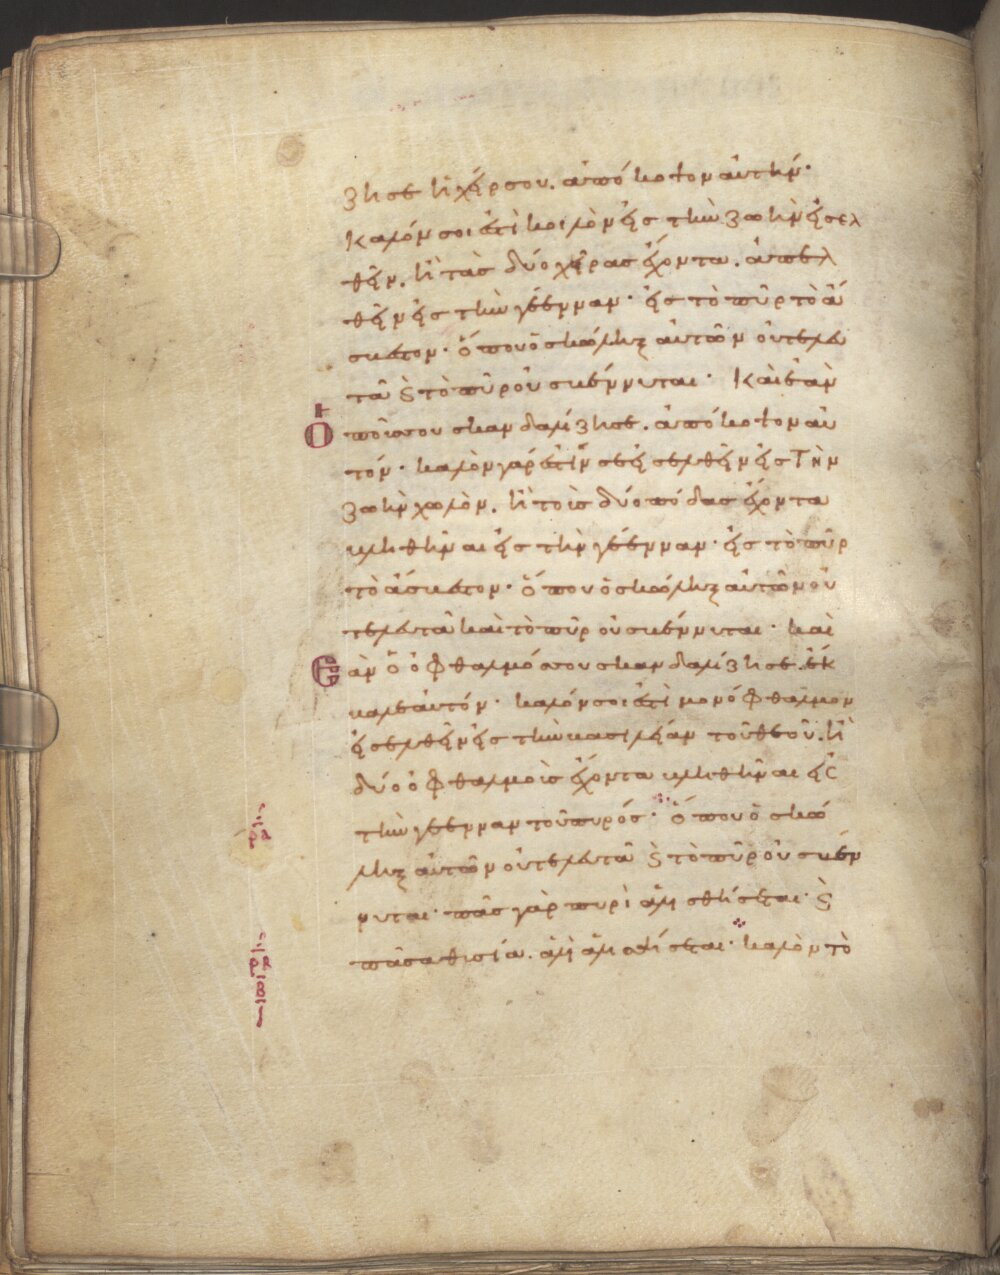 ζησε ἡ χέρσου. ἀπόκοψον ἀυτήν·
Καλόν σοι ἐστὶ κοιλὸν ἐισ τὴν ζωὴν ἐισελ
θεῖν. ἢ τὰσ δύο χεῖρασ ἔχοντα. ἀπελ
θεῖν ἐισ τὴν γέενναν· ἐισ τὸ πῦρ τὸ ἄ
σβεστον· ὅπου ὁ σκώληξ ἀυτῶν ὀυ τελευ
τᾶ ϗ τὸ πῦρ ὀυ σβέννυται· Καὶ ἐὰν
ὁ ποῦσ σου σκανδαλίζησε. ἀπόκοψον ἀυ
τόν· καλὸν γάρ ἐστίν σε ἐισελθεῖν ἐισ τὴν
ζωὴν χωλὸν. ἢ τοὺσ δύο πόδασ ἔχοντα
βληθῆναι ἐισ τὴν γέενναν· ἐισ τὸ πῦρ
τὸ ἄσβεστον· ὅπου ὁ σκώληξ ἀυτῶν ὀυ
τελευτᾶ καὶ τὸ πῦρ ὀυ σβέννυται· καὶ
Ἐὰν ὁ ὀφθαλμόσ σου σκανδαλίζησε. ἔκ
βαλε ἀυτόν· καλόν σοι ἐστὶ μονόφθαλμον
ἐισελθεῖν ἐισ τὴν βασιλείαν τοῦ θεοῦ. ἢ
δύο ὀφθαλμοὺσ ἔχοντα βληθῆναι ἐισ
τὴν γέενναν τοῦ πυρόσ· ὅπου ὁ σκώ
ληξ ἀυτῶν ὀυ τελευτᾶ ϗ τὸ πῦρ ὀυ σβέν
νυται· πᾶσ γὰρ πυρὶ ἁλισθήσεται· ϗ
πᾶσα θυσία. ἁλὶ ἁλισθήσεται· καλὸν τὸ